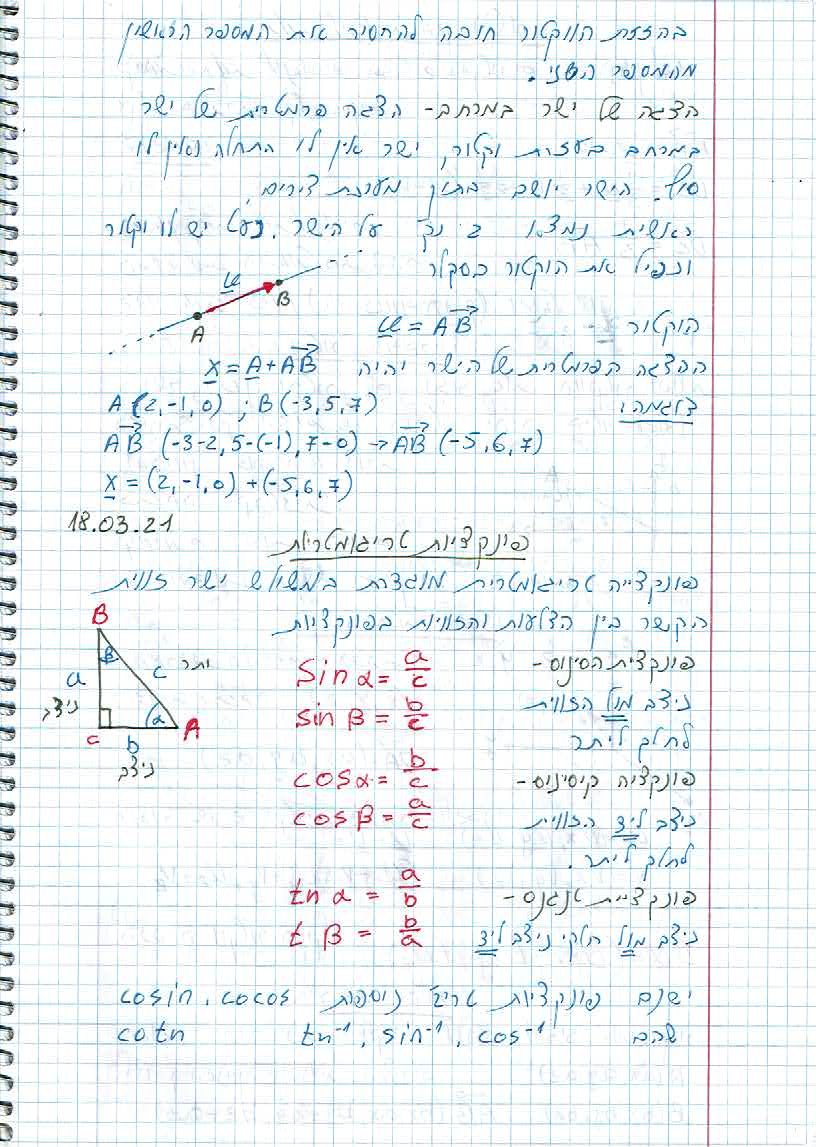 בהזזת הווקטור חובה להחסיר את המספר הראשון
מהמספר השני.
הצגה של ישר במרחב - הצגה פרמטרית של ישר
במרחב בעזרת וקטור, ישר אין לו התחלה ואין לו
סוף. הישר יושב בתוך מערכת צירים,
ראשית נמצא 2 נק' על הישר. כעט יש לו וקטור
ונכפיל את הוקטור בסקלר
u
A
B
הוקטור u = AB
ההצגה הפרמטרית של הישר יהיה x = A + AB
דוגמה: A(2,-1,0) ; B(-3,5,7)
AB (-3-2, 5-(-1), 7-0) → AB (-5,6,7)
x = (2,-1,0) + (-5,6,7)
18.03.21
פונקציות טריגומטריות
פונקצייה טריגומטרית מוגדרת במשולש ישר זווית
הקשר בין הצלעות והזוויות בפונקציות
B
β
a
c
יתר
ניצב
α
c
b
A
ניצב
פונקצית הסינוס - Sin α = a/c
ניצב מול הזווית sin β = b/c
לחלק ליתר
פונקציה קוסינוס - cos α = b/c
ניצב ליד הזווית cos β = a/c
לחלק ליתר.
פונקציית טנגנס - tn α = a/b
ניצב מול חלקי ניצב ליד t β = b/a
ישנם פונקציות טריג' נוספות cosin, cocos
שהם tn⁻¹, sin⁻¹, cos⁻¹ cotn